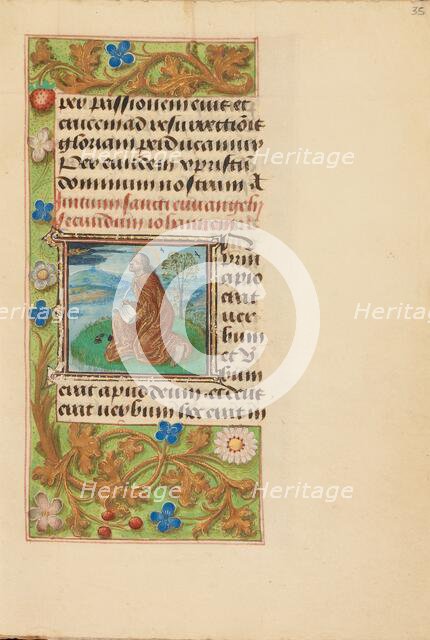 35
per passionem eius et
crucem ad resurrectiōis
gloriam perducamur
Per eundem xpristū
dominum nostrum A
Inicium sancti euuangelij
secundum iohannem
prin
cipio
erat
uer
bum
et v̄
bum
erat apud deum et deus
erat uerbum hoc erat in
Heritage Heritage Heritage
Heritage Heritage Heritage
Heritage Heritage Heritage